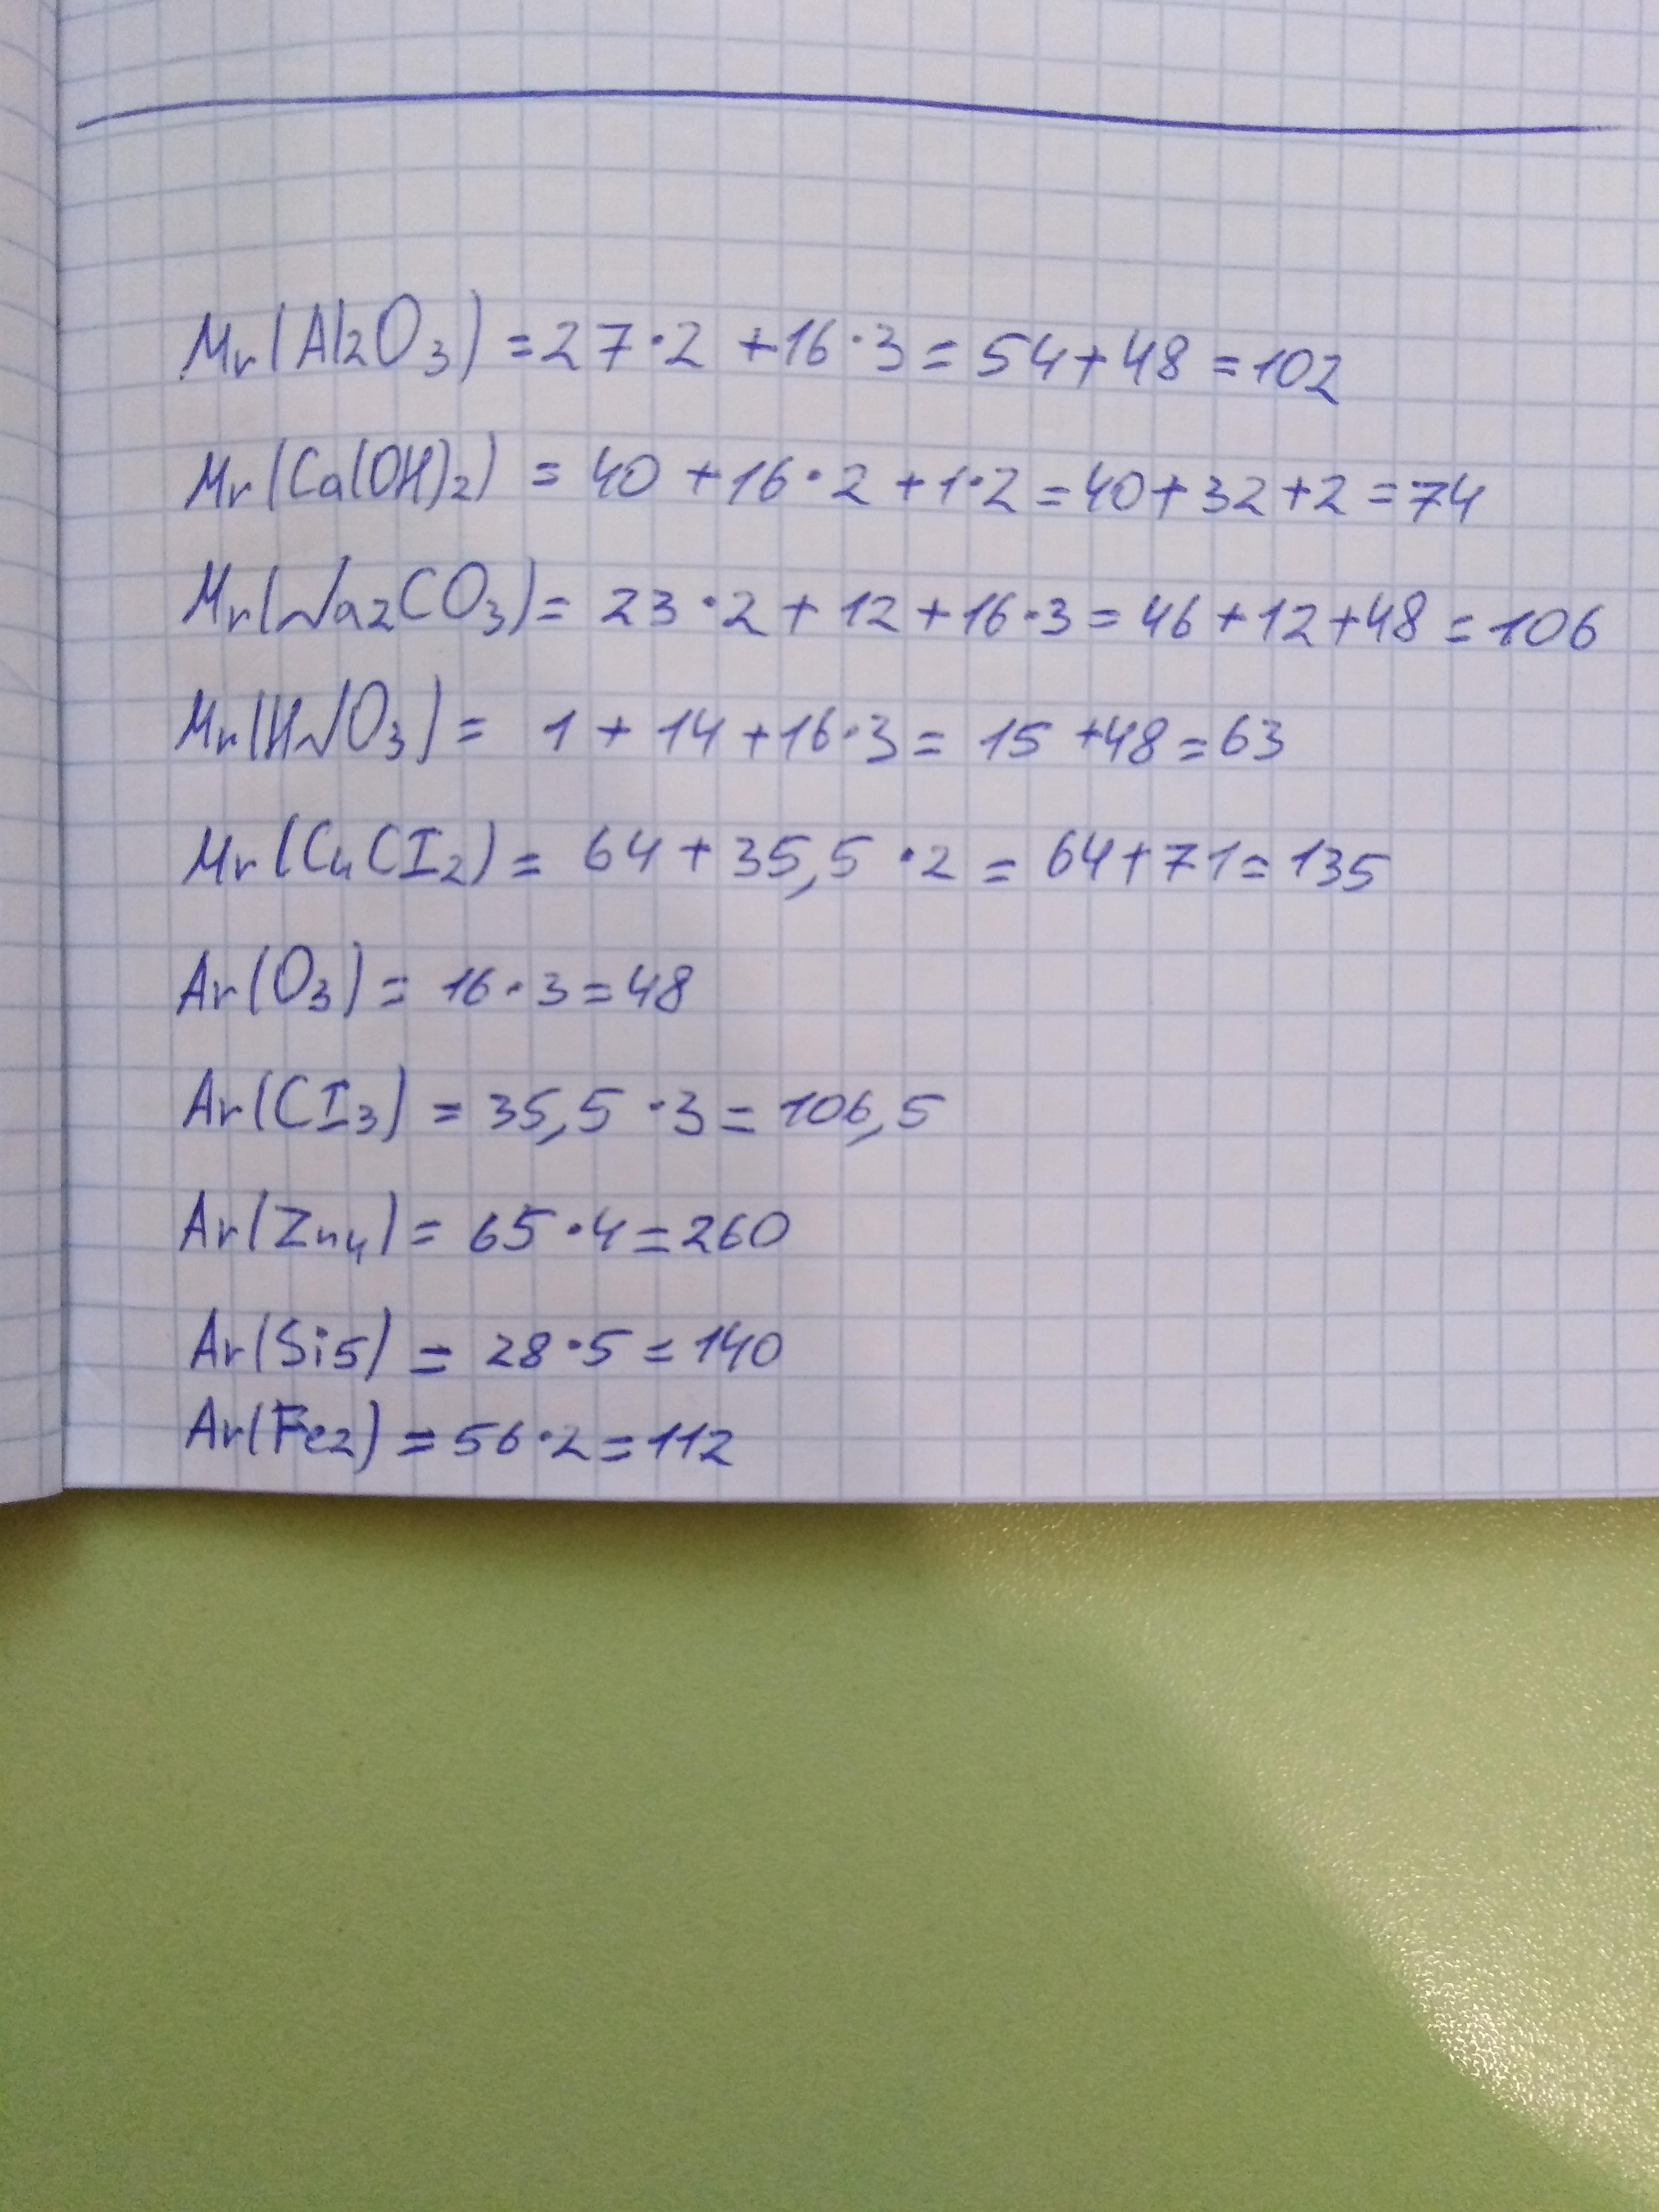 Mr(Al2O3) = 27·2 + 16·3 = 54 + 48 = 102
Mr(Ca(OH)2) = 40 + 16·2 + 1·2 = 40 + 32 + 2 = 74
Mr(Na2CO3) = 23·2 + 12 + 16·3 = 46 + 12 + 48 = 106
Mr(HNO3) = 1 + 14 + 16·3 = 15 + 48 = 63
Mr(CuCI2) = 64 + 35,5·2 = 64 + 71 = 135
Ar(O3) = 16·3 = 48
Ar(CI3) = 35,5·3 = 106,5
Ar(Zn4) = 65·4 = 260
Ar(Si5) = 28·5 = 140
Ar(Fe2) = 56·2 = 112